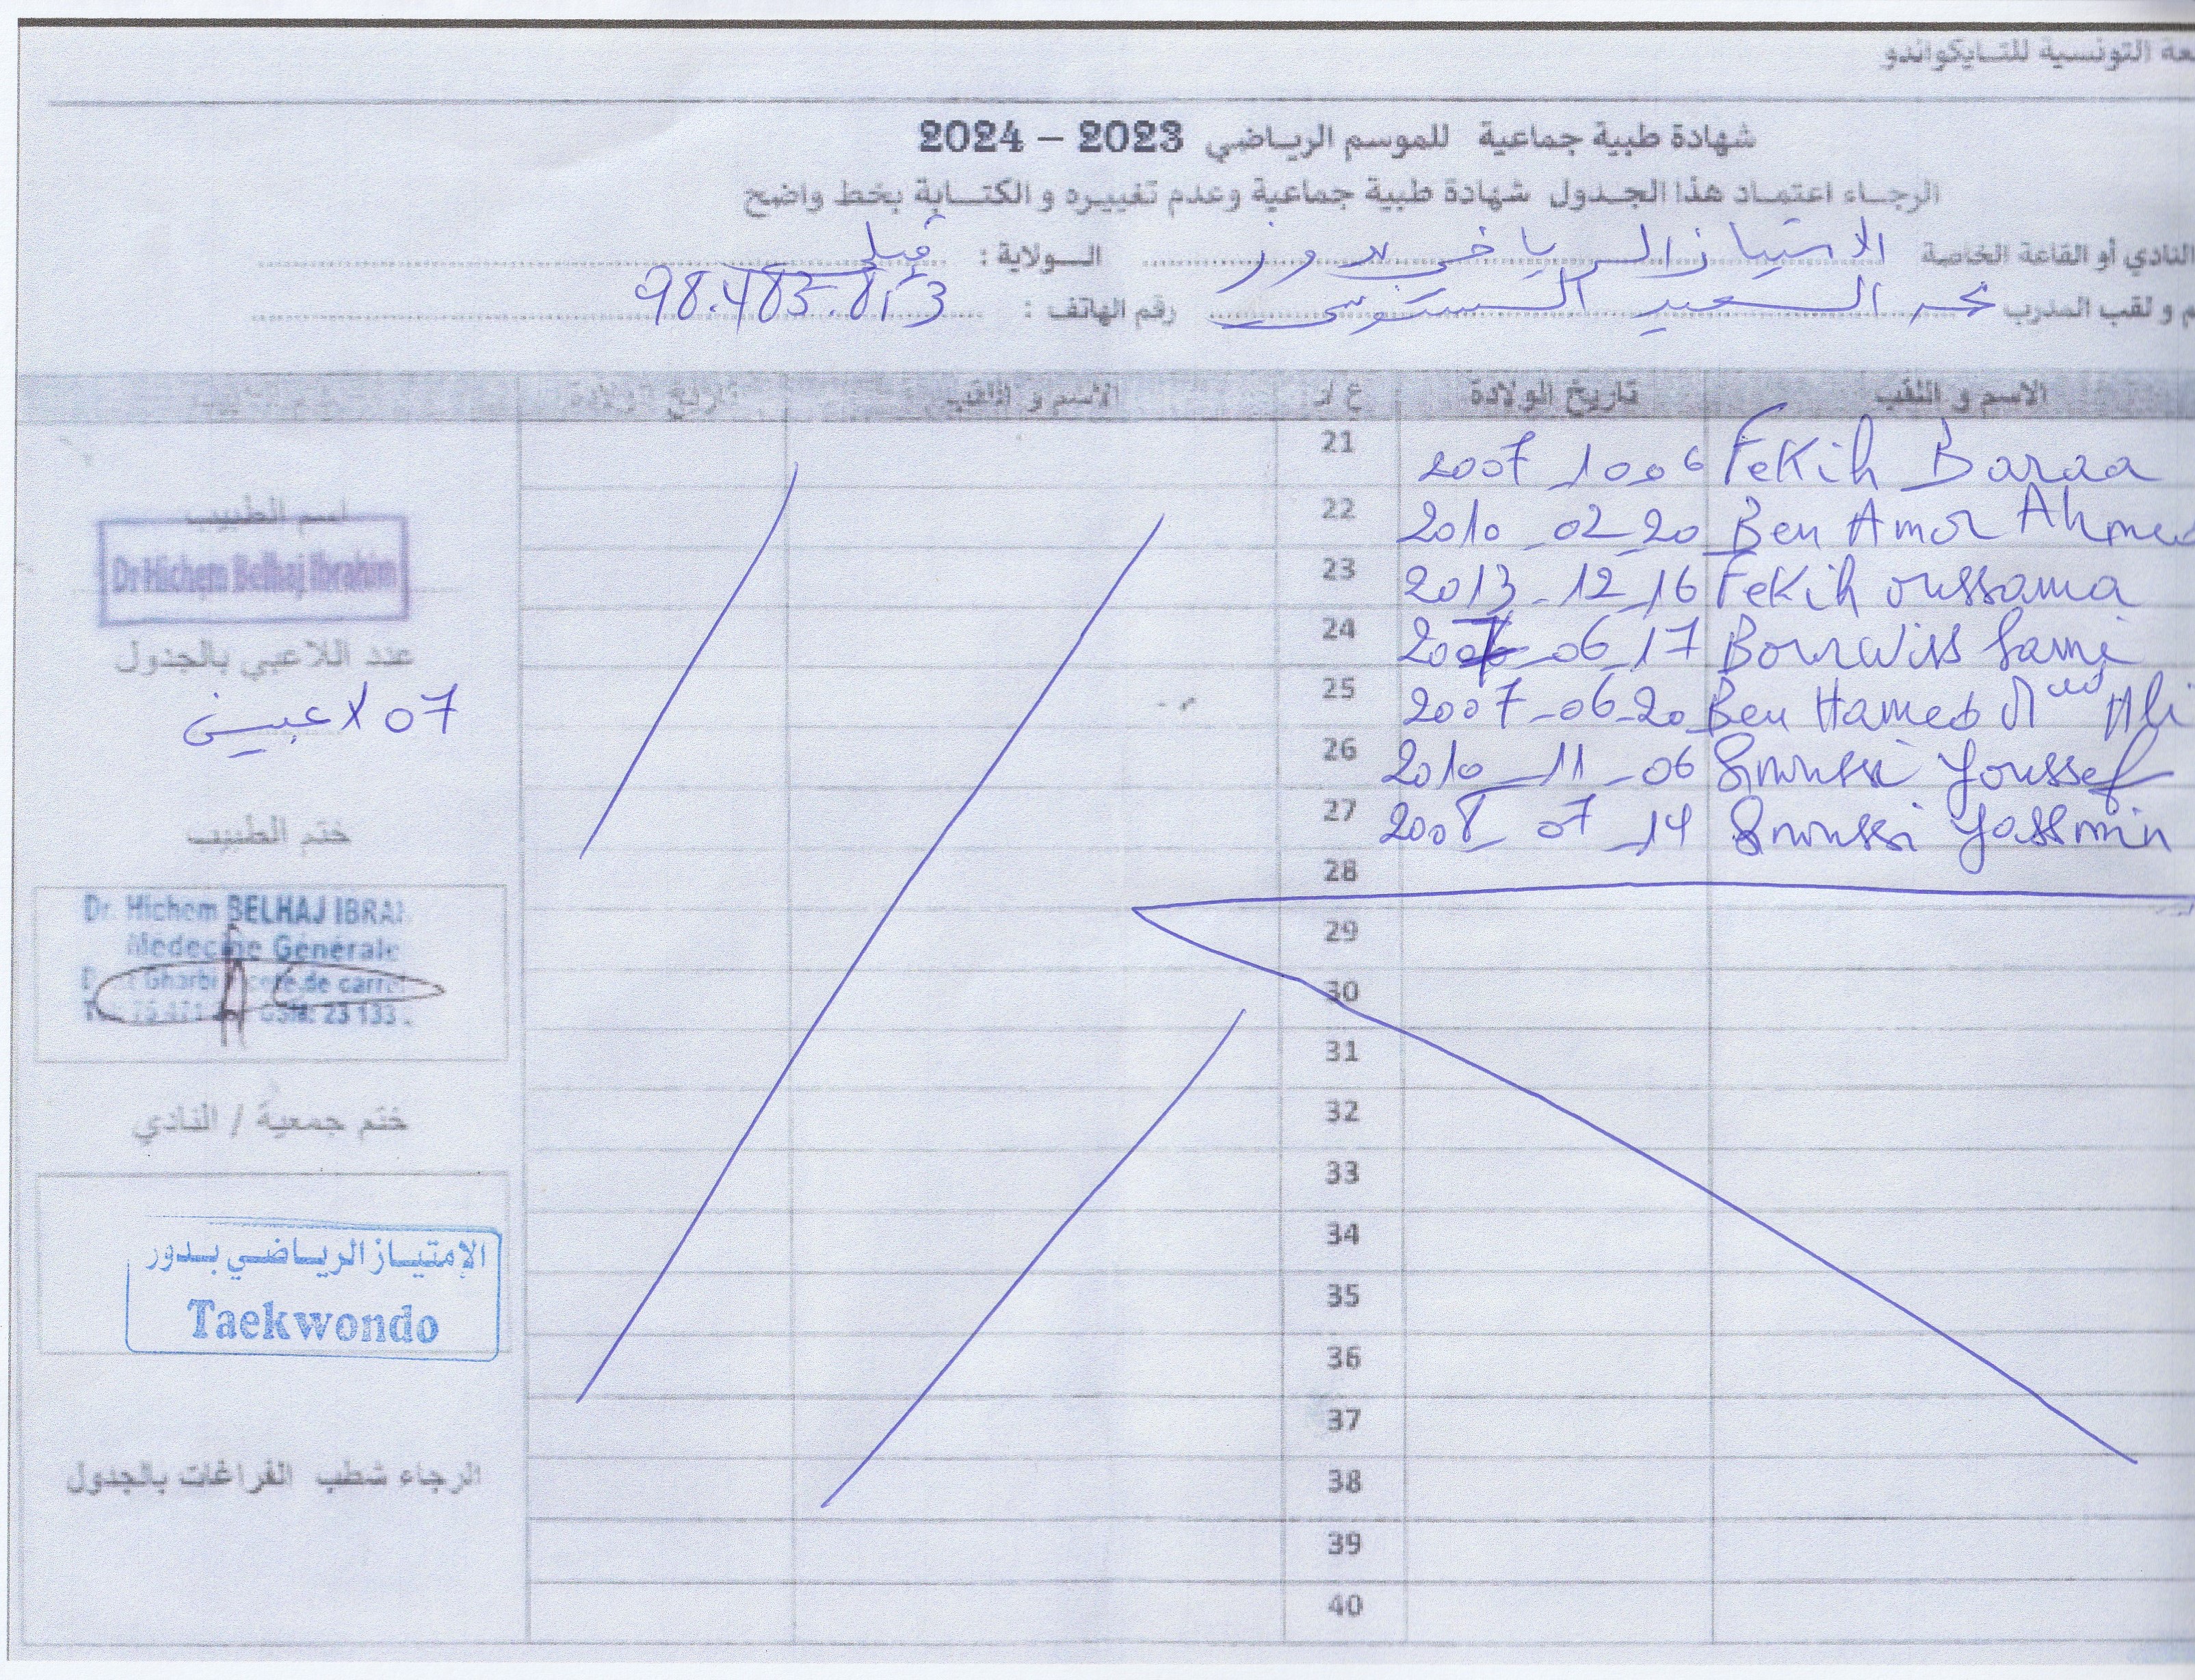 التونسية للتـايكواندو
شهادة طبية جماعية للموسم الريـاضي 2023 – 2024
الرجـاء اعتمـاد هذا الجـدول شهادة طبية جماعية وعدم تغييـره و الكتـابة بخط واضح
النادي أو القاعة الخاصة الامتياز الرياضي بدوز الـولاية : قبلي
و لقب المدرب محمد السعيد السنوسي رقم الهاتف : 98.483.813
الاسم و اللقب تاريخ الولادة ع/ر الاسم و اللقب تاريخ الولادة
Fekih Baraa 2007_10_06 21
Ben Amor Ahmed 2010_02_20 22
Fekih oussama 2013_12_16 23
Bourwiss Sami 06_17 24
Ben Hamed Med Ali 2007_06_20 25
Snoussi Youssef 2010_11_06 26
Snoussi Yassmin 2008_07_14 27
28
29
30
31
32
33
34
35
36
37
38
39
40
اسم الطبيب
Dr Hichem Belhaj Ibrahim
عدد اللاعبي بالجدول
07 لاعبين
ختم الطبيب
Dr. Hichem BELHAJ IBRA
Médecine Générale
Gharbi de carre
GSM: 23 133
ختم جمعية / النادي
الإمتيـاز الريـاضـي بـدوز
Taekwondo
الرجاء شطب الفراغات بالجدول